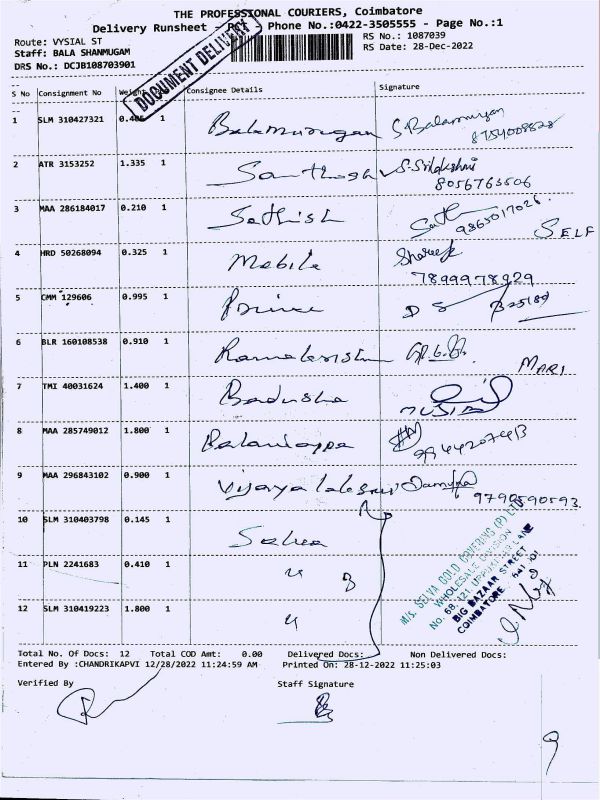 THE PROFESSIONAL COURIERS, Coimbatore
Delivery Runsheet - PCT - Phone No.:0422-3505555 - Page No.:1
Route: VYSIAL ST
RS No.: 1087039
Staff: BALA SHANMUGAM
RS Date: 28-Dec-2022
DRS No.: DCJB108703901
DOCUMENT DELIVERY
S No Consignment No Weight Consignee Details Signature
1 SLM 310427321 0.405 1 Balamurugan S. Balamurugan
2 ATR 3153252 1.335 1 Santhosh S. Srilakshmi
8056763506
3 MAA 286184017 0.210 1 Sathish Sath
9865017026.
SELF
4 HRD 50268094 0.325 1 Mobile Shareef
7899978929
5 CMM 129606 0.995 1 Prince DS
6 BLR 160108538 0.910 1 Ramakrishn
MARI
7 TMI 40031624 1.400 1 Badusha
MUSIB
8 MAA 285749012 1.800 1
9944420743
9 MAA 296843102 0.900 1
9790590593.
10 SLM 310403798 0.145 1 Selva
11 PLN 2241683 0.410 1 " 3
12 SLM 310419223 1.800 1 "
M/s. SELVA GOLD COVERING (P) LTD
WHOLESALE DIVISION
No. 68, 121, UPPUKINAR LANE
BIG BAZAAR STREET
COIMBATORE - 641 001
Total No. Of Docs: 12 Total COD Amt: 0.00 Delivered Docs: Non Delivered Docs:
Entered By :CHANDRIKAPVI 12/28/2022 11:24:59 AM Printed On: 28-12-2022 11:25:03
Verified By Staff Signature
9